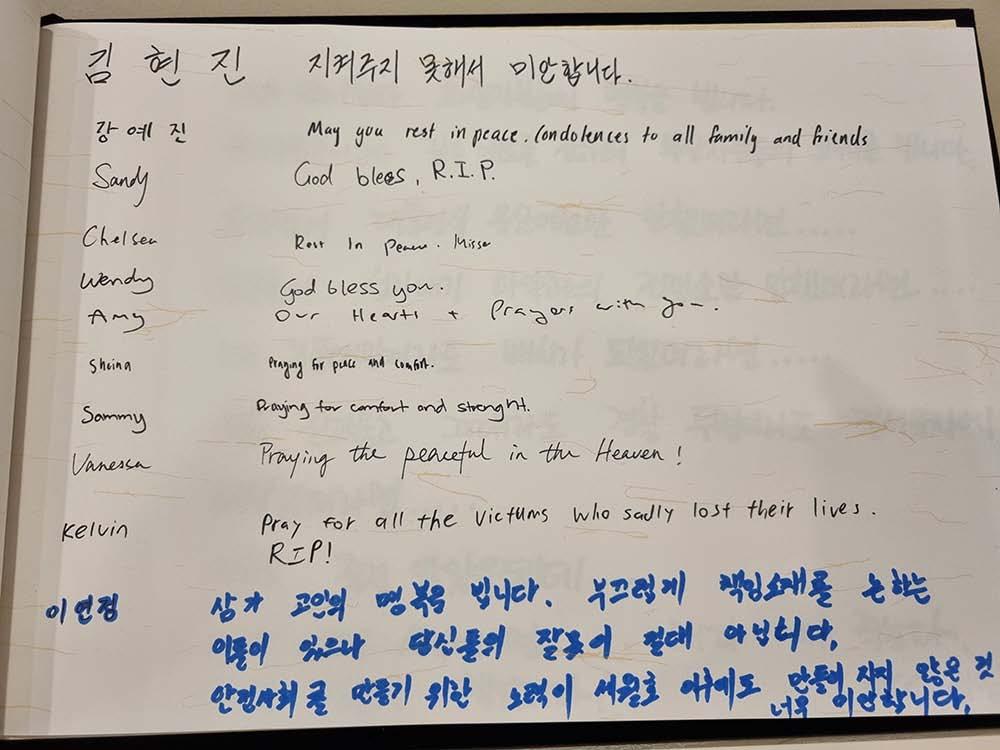 김현진 지켜주지 못해서 미안합니다.
강예진 May you rest in peace. Condolences to all family and friends
Sandy God bless, R.I.P.
Chelsea Rest In Peace.
Wendy God bless you.
Amy Our Hearts + Prayers with you.
Sheina Praying for peace and comfort.
Sammy Praying for comfort and strenght.
Vanessa Praying the peaceful in the Heaven!
Kelvin Pray for all the victums who sadly lost their lives.
RIP!
이언정 삼가 고인의 명복을 빕니다. 부끄럽게 책임소재를 논하는
이들이 있으나 당신들의 잘못이 절대 아닙니다.
안전사회를 만들기 위한 노력이 세월호 이후에도 만들어지지 않은 것
너무 미안합니다.